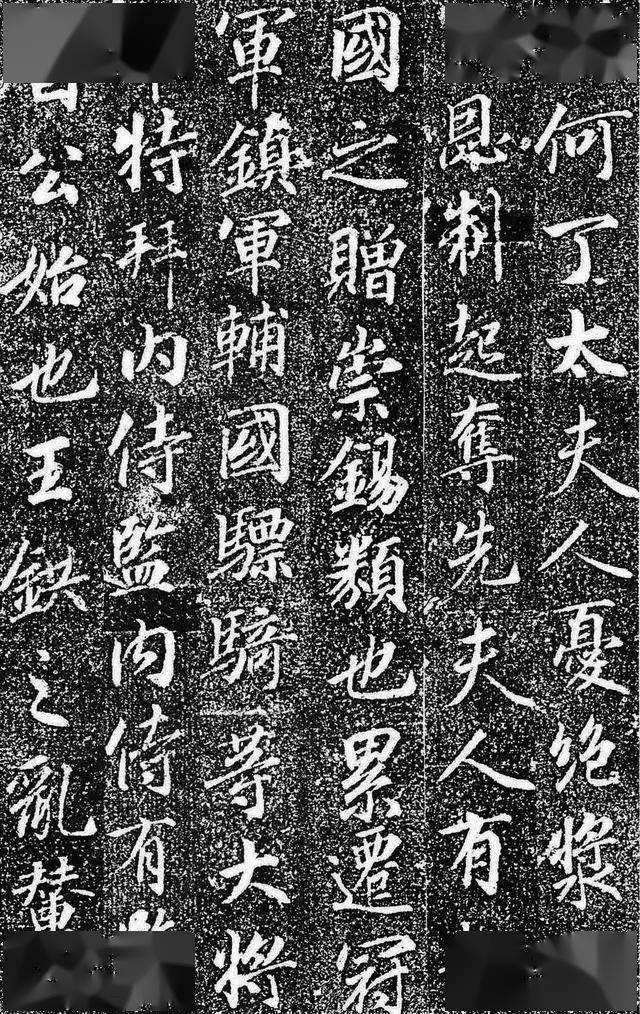 何丁太夫人憂絶漿
恩制起奪先夫人有
國之贈崇錫類也累遷冠
軍鎮軍輔國驃騎等大將
特拜内侍監内侍有
公始也王鉷之亂輦